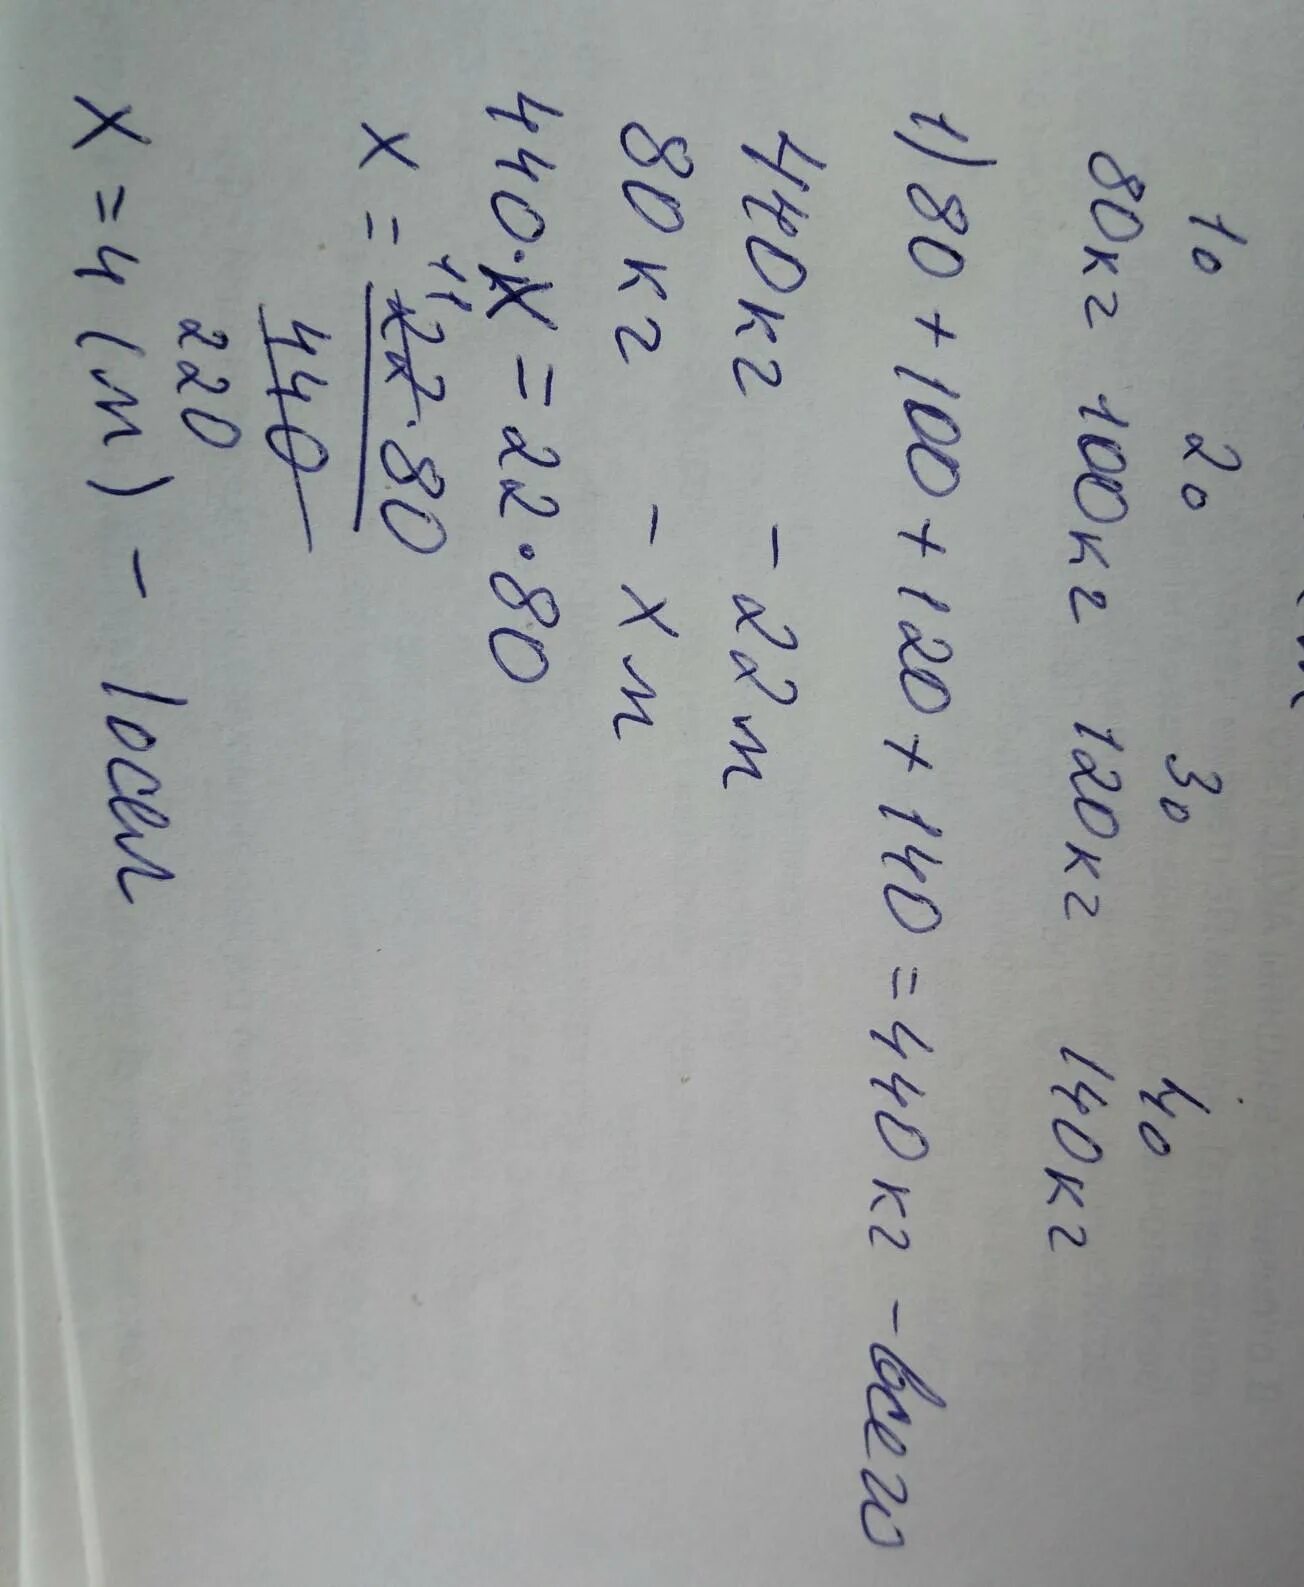 1о 2о 3о 4о
80кг 100кг 120кг 140кг
1) 80 + 100 + 120 + 140 = 440кг - всего
440кг - 22л
80кг - Xл
440·X = 22·80
11
X = 22·80
440
220
X = 4 (л) - 1осел